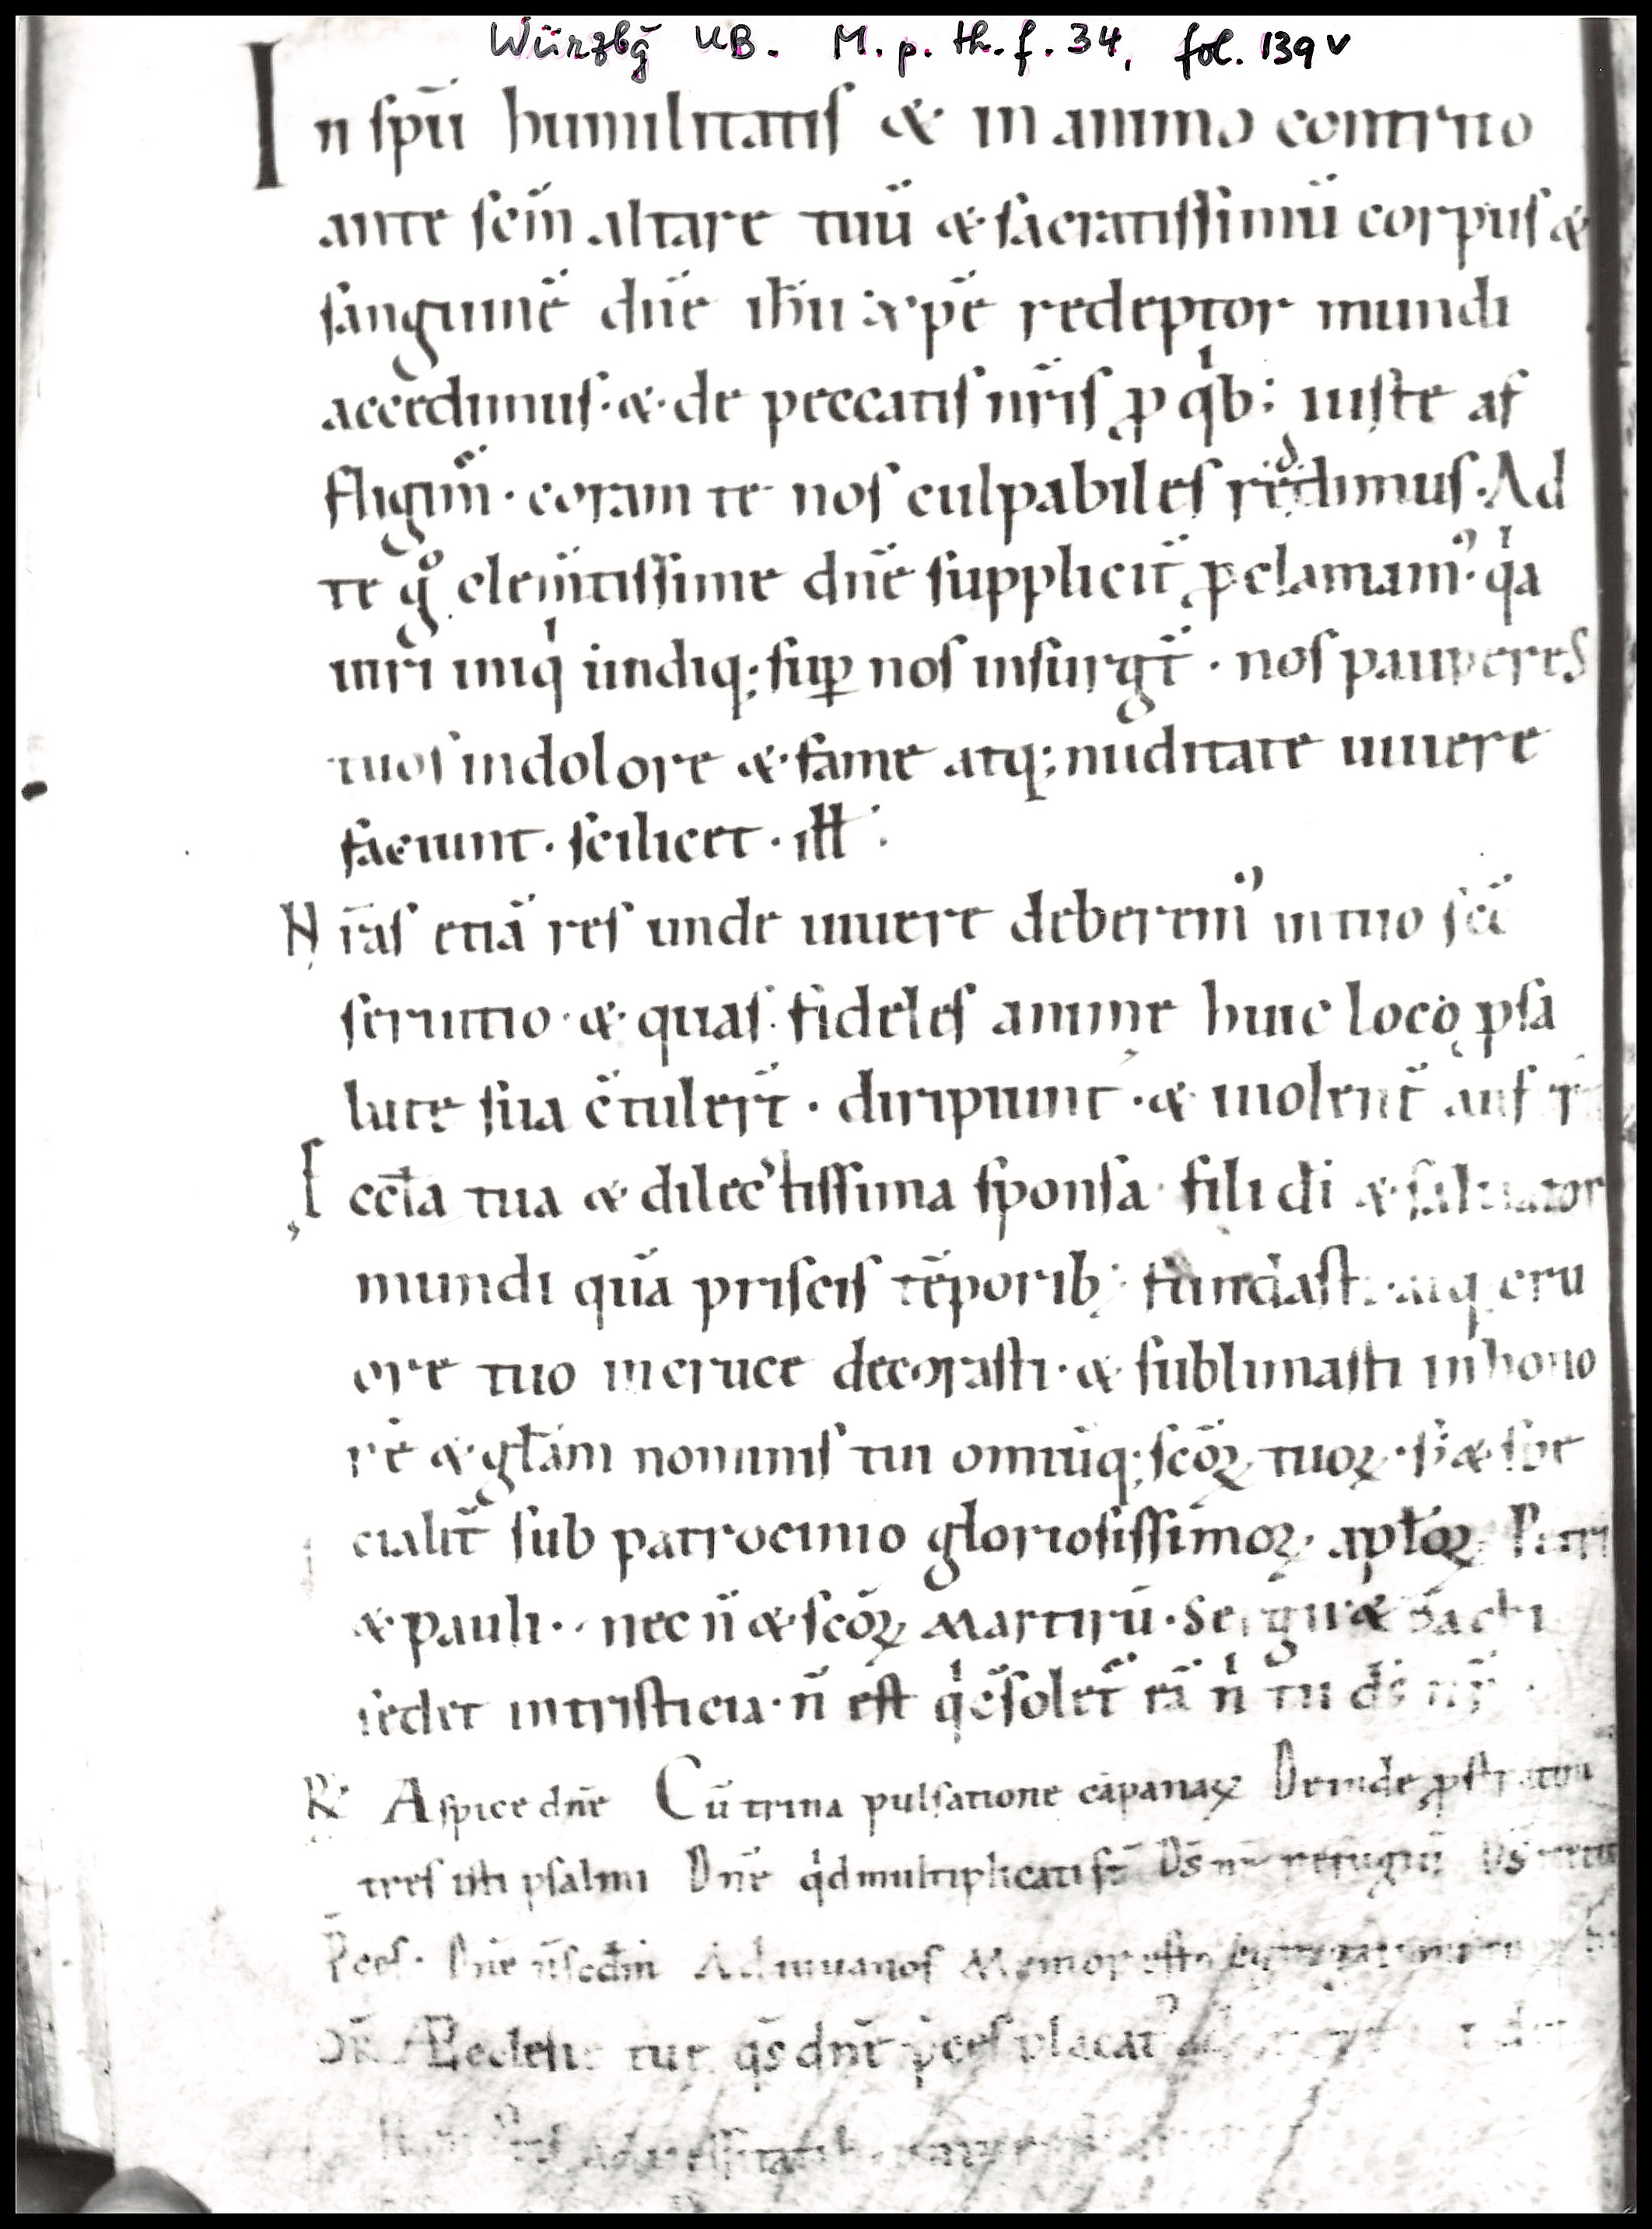 Würzbg̃ UB. M.p.th.f.34, fol. 139v
In sp̄u humilitatis & in animo contrito
ante sc̄m altare tuū & sacratissimū corpus &
sanguinē dn̄e ih̄u xp̄e redēptor mundi
accedimus · & · de peccatis nr̄is ꝓ qͥb; iuste af
fligim̄ · coram te nos culpabiles reddimus · Ad
te gͦ clem̄tissime dn̄e supplicit̄ ꝓclamamꝰ · qͥa
uiri iniqͥ undiq; suꝑ nos insurgt̄ · nos pauperes
tuos in dolore & fame atq; nuditate uiuere
faciunt · scilicet · ill̄ ·
Nr̄as etiā res unde uiuere deberemꝰ in tuo sc̄o
seruitio · & · quas fideles animę huic loco ꝑ sa
lute sua c̄tulert̄ · diripiunt · & uiolent̄
Ęccl̄a tua & dilectissima sponsa fili dī & saluator
mundi quā priscis tēporib; fundasti · atq; cru
ore tuo in cruce decorasti · & sublimasti in hono
rē & gl̄am nominis tui omniūq; sc̄oꝝ tuoꝝ · sͥ & spe
cialit̄ sub patrocinio gloriosissimoꝝ · apl̄oꝝ Petri
& pauli · nec n̄ & sc̄oꝝ Martirū · Sergii & bachi
sedet in tristicia · n̄ est qͥ c̄solet̄ eā nͥ tu ds̄ nr̄
R̸ Aspice dn̄e Cū trina pulsatione cāpanaꝝ Deinde ꝓstratim
tres isti psalmi Dn̄e qͥd multiplicati st̄ Ds̄ nr̄ refugiū Ds̄
P̄ces · Dn̄e n̄ scdm̄ Adiuua nos Memor esto
Or̄ Æcclesie tuę qs̄ dn̄e p̄ces placat̉